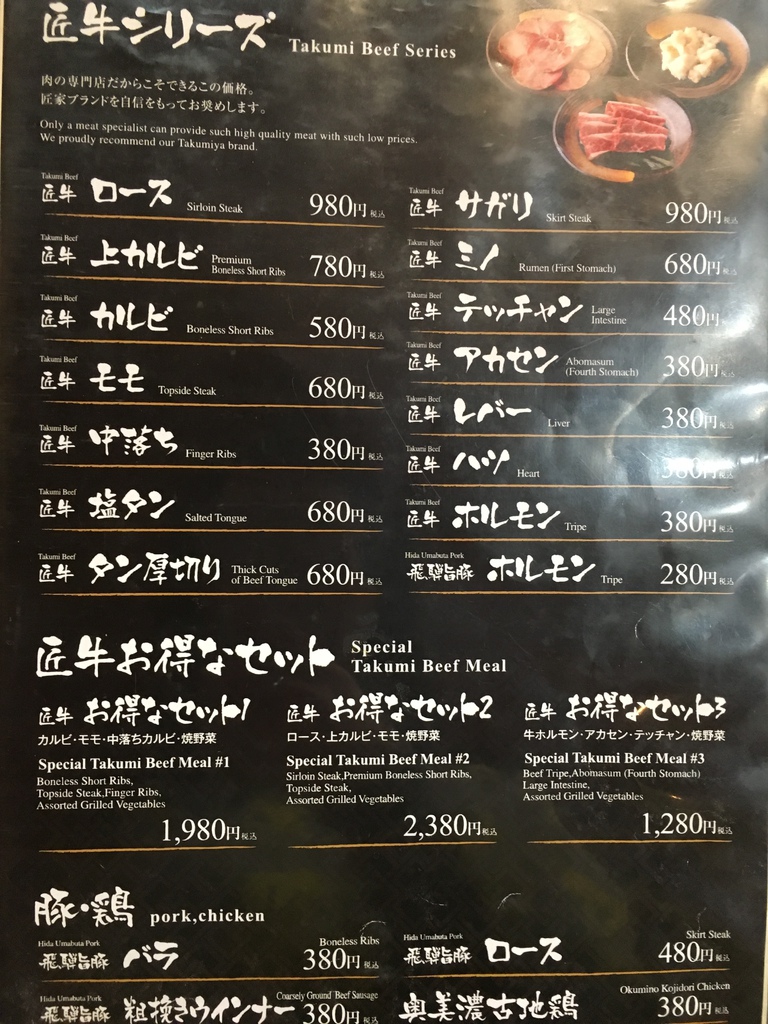 匠牛シリーズ Takumi Beef Series
肉の専門店だからこそできるこの価格。
匠家ブランドを自信をもってお奨めします。
Only a meat specialist can provide such high quality meat with such low prices.
We proudly recommend our Takumiya brand.
Takumi Beef
匠牛 ロース Sirloin Steak 980円税込
Takumi Beef
匠牛 上カルビ Premium
Boneless Short Ribs 780円税込
Takumi Beef
匠牛 カルビ Boneless Short Ribs 580円税込
Takumi Beef
匠牛 モモ Topside Steak 680円税込
Takumi Beef
匠牛 中落ち Finger Ribs 380円税込
Takumi Beef
匠牛 塩タン Salted Tongue 680円税込
Takumi Beef
匠牛 タン厚切り Thick Cuts
of Beef Tongue 680円税込
Takumi Beef
匠牛 サガリ Skirt Steak 980円税込
Takumi Beef
匠牛 ミノ Rumen (First Stomach) 680円税込
Takumi Beef
匠牛 テッチャン Large
Intestine 480円
Takumi Beef
匠牛 アカセン Abomasum
(Fourth Stomach) 380円税込
Takumi Beef
匠牛 レバー Liver 380円税込
Takumi Beef
匠牛 ハツ Heart 380円税込
Takumi Beef
匠牛 ホルモン Tripe 380円税込
Hida Umabuta Pork
飛騨旨豚 ホルモン Tripe 280円税込
匠牛お得なセット Special
Takumi Beef Meal
匠牛 お得なセット1
カルビ・モモ・中落ちカルビ・焼野菜
Special Takumi Beef Meal #1
Boneless Short Ribs,
Topside Steak,Finger Ribs,
Assorted Grilled Vegetables
1,980円税込
匠牛 お得なセット2
ロース・上カルビ・モモ・焼野菜
Special Takumi Beef Meal #2
Sirloin Steak,Premium Boneless Short Ribs,
Topside Steak,
Assorted Grilled Vegetables
2,380円税込
匠牛 お得なセット3
牛ホルモン・アカセン・テッチャン・焼野菜
Special Takumi Beef Meal #3
Beef Tripe,Abomasum (Fourth Stomach)
Large Intestine,
Assorted Grilled Vegetables
1,280円税込
豚・鶏 pork,chicken
Hida Umabuta Pork
飛騨旨豚 バラ Boneless Ribs
380円税込
Hida Umabuta Pork
飛騨旨豚 ロース Skirt Steak
480円税込
Hida Umabuta Pork
飛騨旨豚 粗挽きウインナー Coarsely Ground Beef Sausage
380円税込
奥美濃古地鶏 Okumino Kojidori Chicken
380円税込